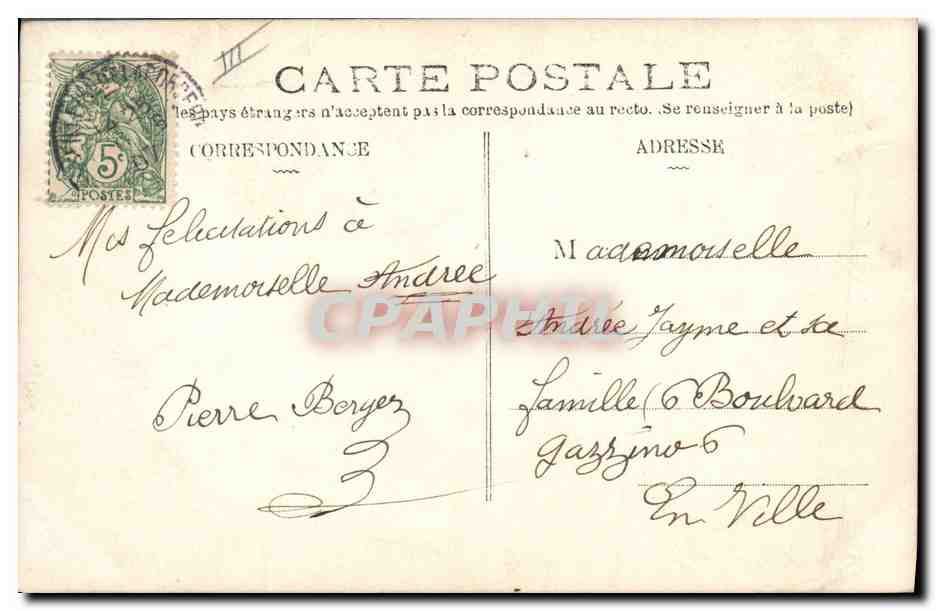 III
CARTE POSTALE
les pays étrangers n'acceptent pas la correspondance au recto. (Se renseigner à la poste)
CORRESPONDANCE
ADRESSE
5c
POSTES
Mes felicitations à
Mademoiselle Andrée
Pierre Bergez
Mademoiselle
Andrée Jayme et sa
famille (6 Boulvard
gazzino 6
En Ville
CPAPHIL